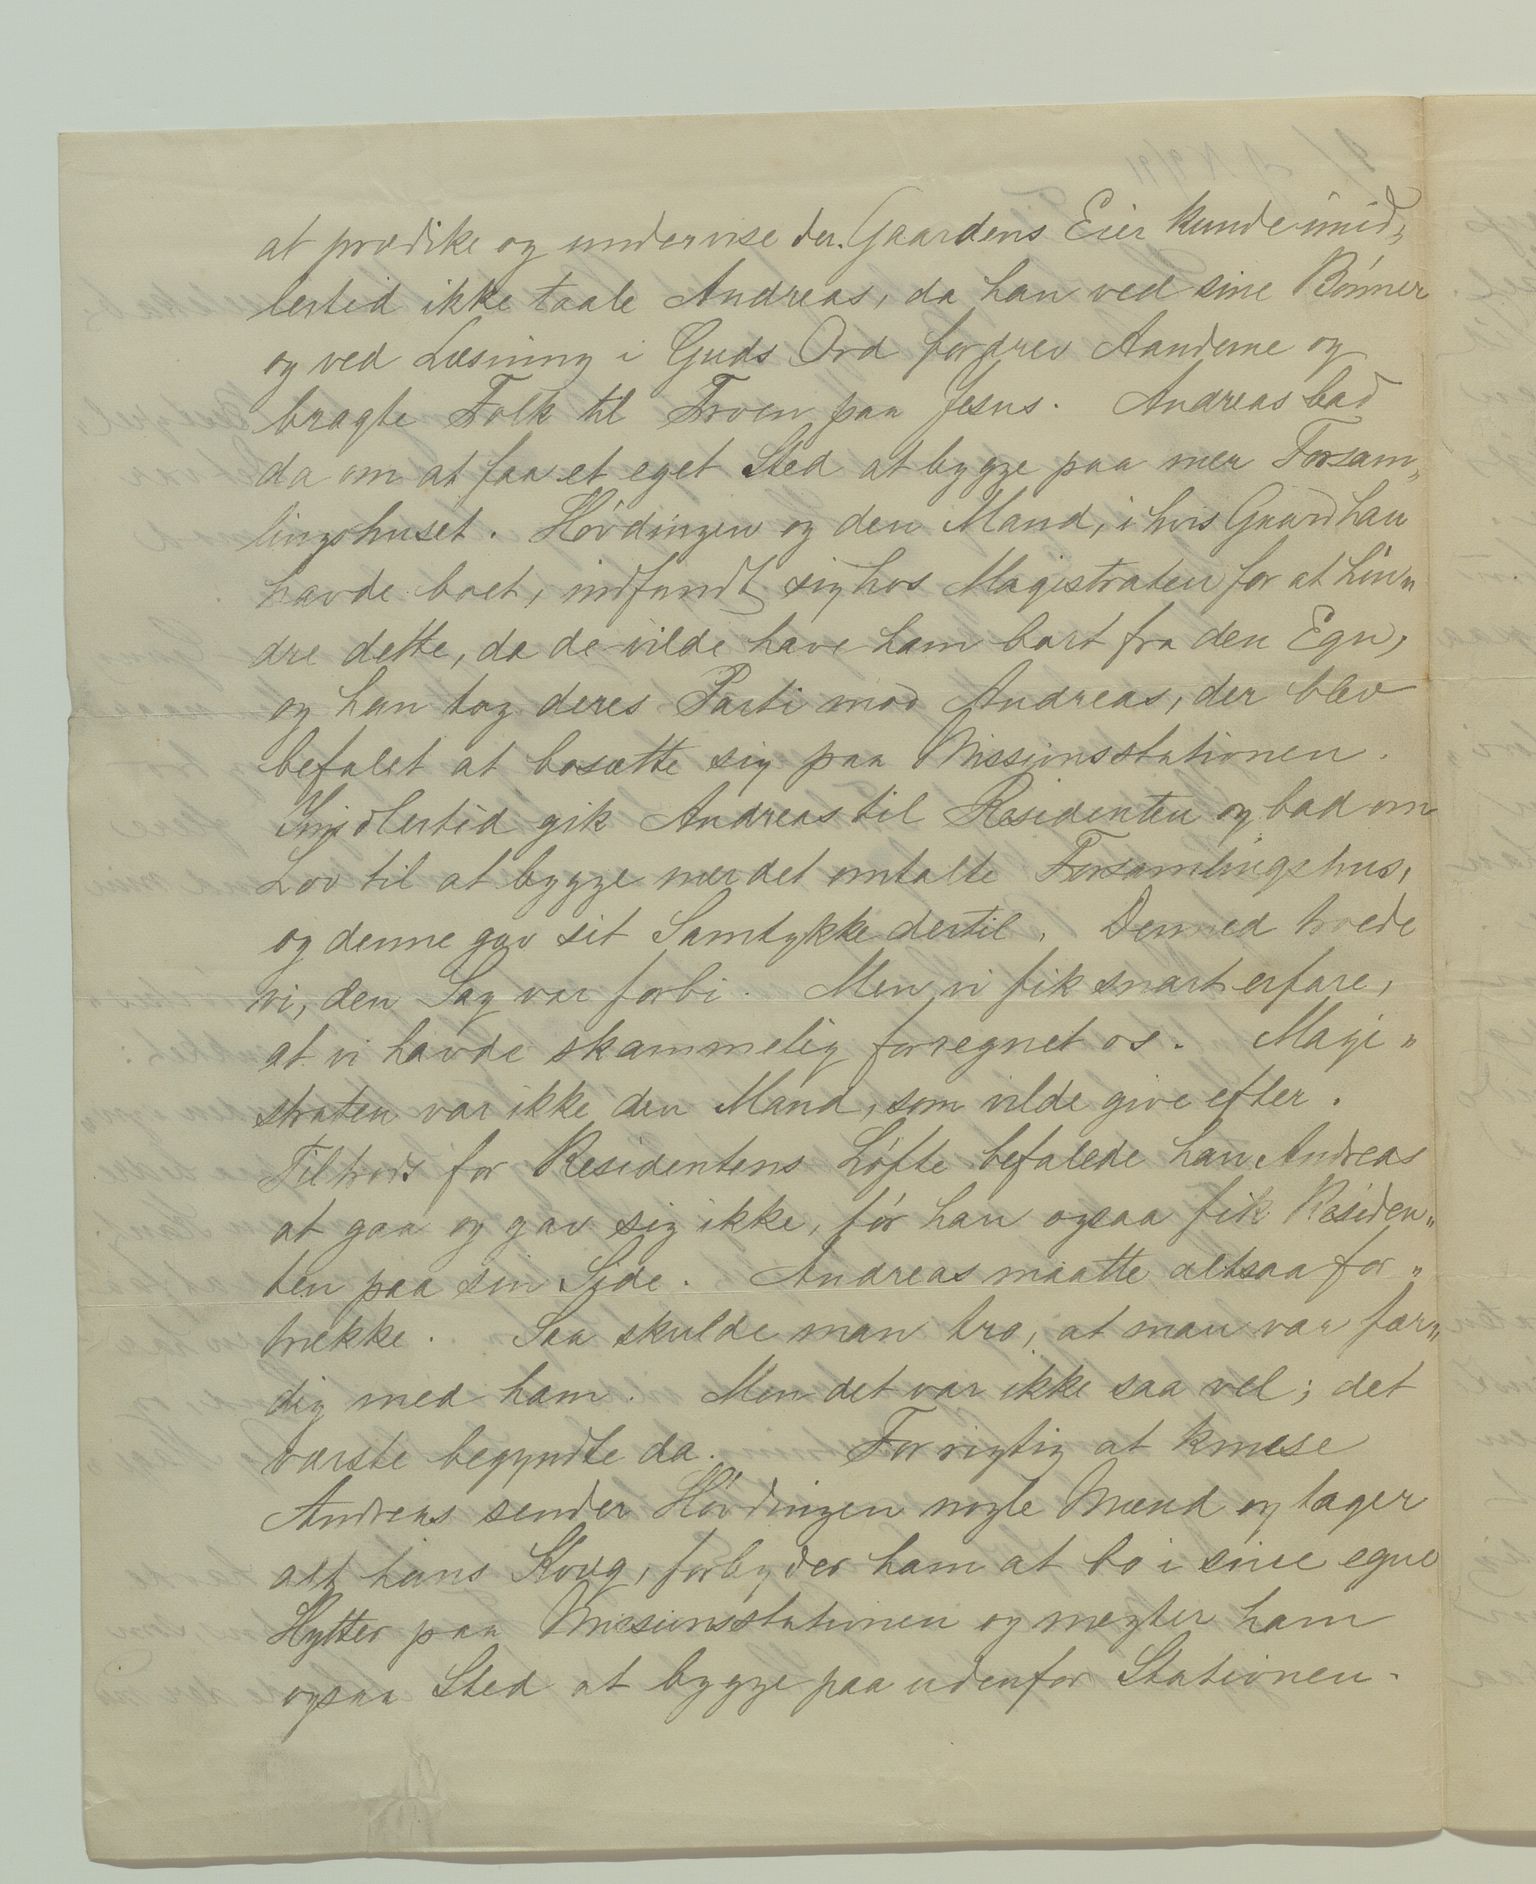 at prædike og undervise der. Gaardens Eier kunde imid„
lertid ikke taale Andreas, da han ved sine Bönner
og ved Læsning i Guds Ord fordrev Aanderne og
bragte Folk til Troen paa Jesus. Andreas bad
da om at faa et eget Sted at bygge paa nær Forsam„
lingshuset. Hövdingen og den Mand, i hvis Gaard han
havde boet, indfandt sig hos Magistraten for at hin„
dre dette, da de vilde have ham bort fra den Egn,
og han tog deres Parti mod Andreas, der blev
befalet at bosætte sig paa Missionsstationen.
Imidlertid gik Andreas til Residenten og bad om
Lov til at bygge nær det omtalte Forsamlingshus,
og denne gav sit Samtykke dertil. Dermed troede
vi, den Sag var forbi. Men vi fik snart erfare,
at vi havde skammelig forregnet os. Magi„
straten var ikke den Mand, som vilde give efter.
Tiltrods for Residentens Löfte befalede han Andreas
at gaa og gav sig ikke, för han ogsaa fik Residen„
ten paa sin Side. Andreas maatte altsaa for„
trække. Saa skulde man tro, at man var fær„
dig med ham. Men det var ikke saa vel; det
værste begyndte da. For rigtig at knuse
Andreas sender Hövdingen nogle Mænd og tager
alt hans Kvæg, forbyder ham at bo i sine egne
Hytter paa Missionsstationen og nægter ham
ogsaa Sted at bygge paa udenfor Stationen.